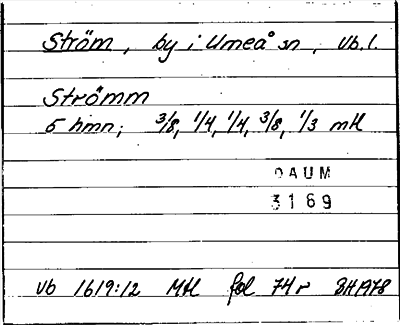 Ström, by i Umeå sn, Vb. l.
Strömm
5 hmn; 3/8, 1/4, 1/4, 3/8, 1/3 mtl
DAUM
3169
Vb 1619:12 Mtl fol 74 r BH 1978